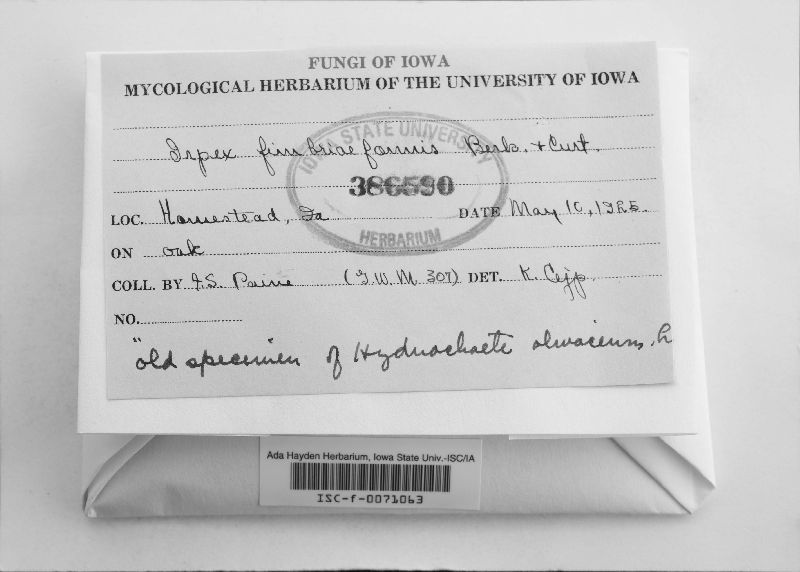 FUNGI OF IOWA
MYCOLOGICAL HERBARIUM OF THE UNIVERSITY OF IOWA
Irpex fimbriaeformis Berk. + Curt.
IOWA STATE UNIVERSITY
386590
HERBARIUM
LOC. Homestead, Ia DATE May 10, 1925.
ON oak
COLL. BY F.S. Paine (G.W.M. 307) DET. K. Cejp.
NO.
"old specimen of Hydnochaete olivaceum,
Ada Hayden Herbarium, Iowa State Univ.-ISC/IA
ISC-f-0071063